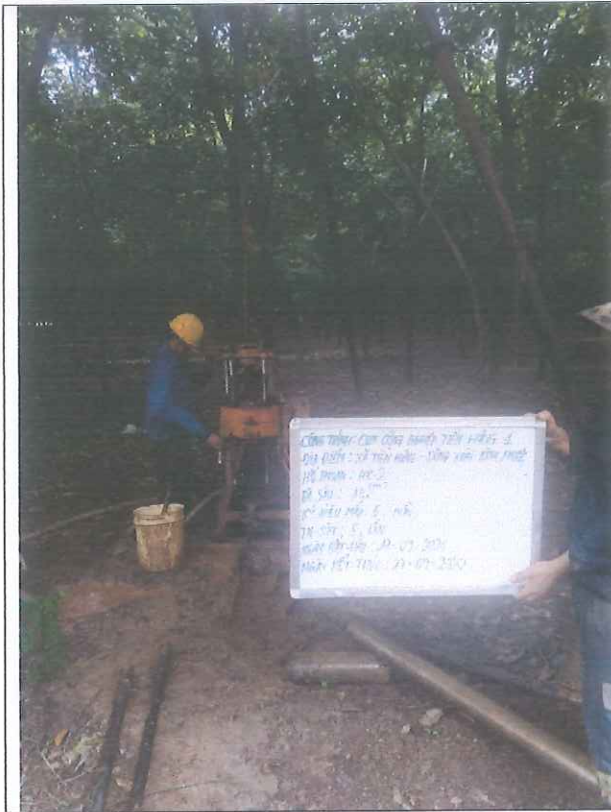 CÔNG TRÌNH: CỤM CÔNG NGHIỆP TIẾN HƯNG 1
ĐỊA ĐIỂM: XÃ TIẾN HƯNG - ĐỒNG XOÀI BÌNH PHƯỚC
HỐ KHOAN: HK-2
ĐỘ SÂU:
SỐ HIỆU MẪU: 5 MẪU
TN SPT: 5 LẦN
NGÀY BẮT ĐẦU:
NGÀY KẾT THÚC: